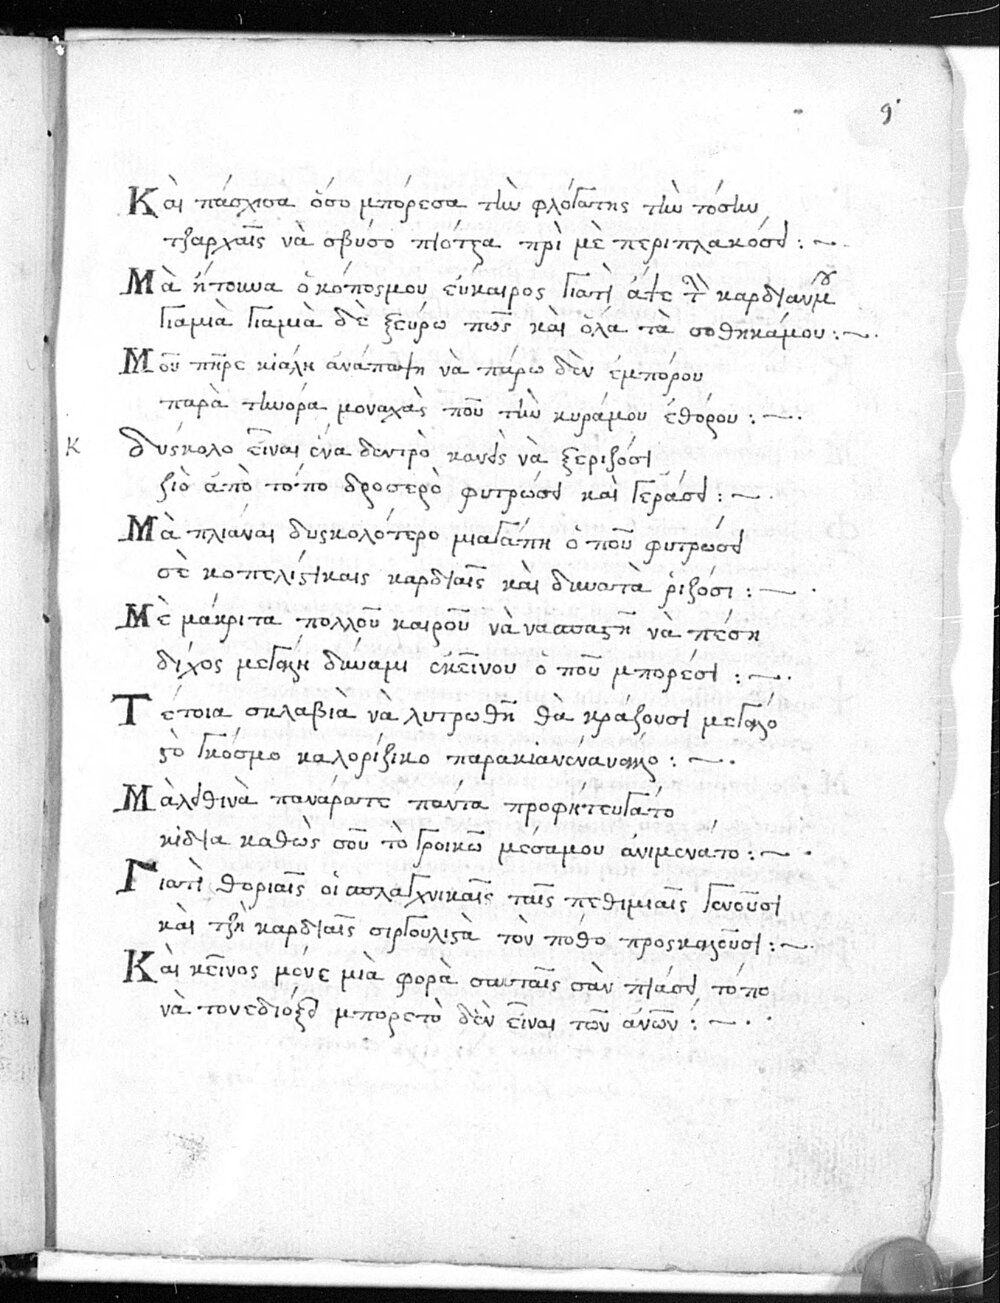 9·
Κ ὰι πάσχισα ὅσο μπόρεσα τὴν φλόγατης τὴν τόσην
τζαρχαῖς νὰ σβύσο πίοτζα πρὶ μὲ περιπλακόσει : ~ .
Μ ὰ ήτονυα ὁ κόποςμου εύκαιρος γιατὶ άψε τὴ καρδιανμου
γιαμιὰ γιαμια δὲ ξεύρω πῶς καὶ ολα τὰ σοθηκάμου : ~ .
Μ οῦ πῆρε κιάλη ἀνάπαψη νὰ πάρω δὲν ἐμπόρου
παρὰ τηνόρα μοναχὰς ποῦ τὴν κυράμου ἐθόρου : ~ .
Κ Δ ύςκολο εἶναι ένα δεντρὸ κανὲς νὰ ξεριζόσι
ςιὸ ἀπὸ τόπο δροσερὸ φυτρώσει καὶ γεράσει : ~ .
Μ ὰ πλιάναι δυςκολότερο μιαγάπη ὁ ποῦ φυτρώσει
σὲ κοπελίςικαις καρδιαῖς καὶ δυνατὰ ῥιζόσι : ~ .
Μ ὲ μάκριτα πολλοῦ καιροῦ νὰ νασπαςῆ νὰ πέση
δίχος μεγάλη δύναμι ἐκεῖνου ὁ ποῦ μπορέσι : ~ .
Τ έτοια σκλαβια νὰ λυτρωθῆ θὰ κράζουσι μεγάλο
ςὸ γκόσμο καλορίζικο παρακιανέναναλο : ~ .
Μ αλήθινὰ πανάρατε πάντα προφητευγάτο
κιδια καθὼς σοῦ τὸ γροικῶ μέσαμου ανιμενατο : ~ .
Γ ιατὶ θοριαῖς οἱ ασπλαγχνικαῖς ταῖς πεθιμιαῖς γενοῦσι
καὶ τζῆ καρδιαῖς σιργουλιςὰ τὸν πόθο προςκαλοῦσι : ~ .
Κ ὰι κεῖνος μόνε μιὰ φορὰ σαυταῖς σὰν πιάσει τόπο
νὰ τονεδιόξει μπορετὸ δὲν εἶναι τῶν ἀνῶν : ~ .